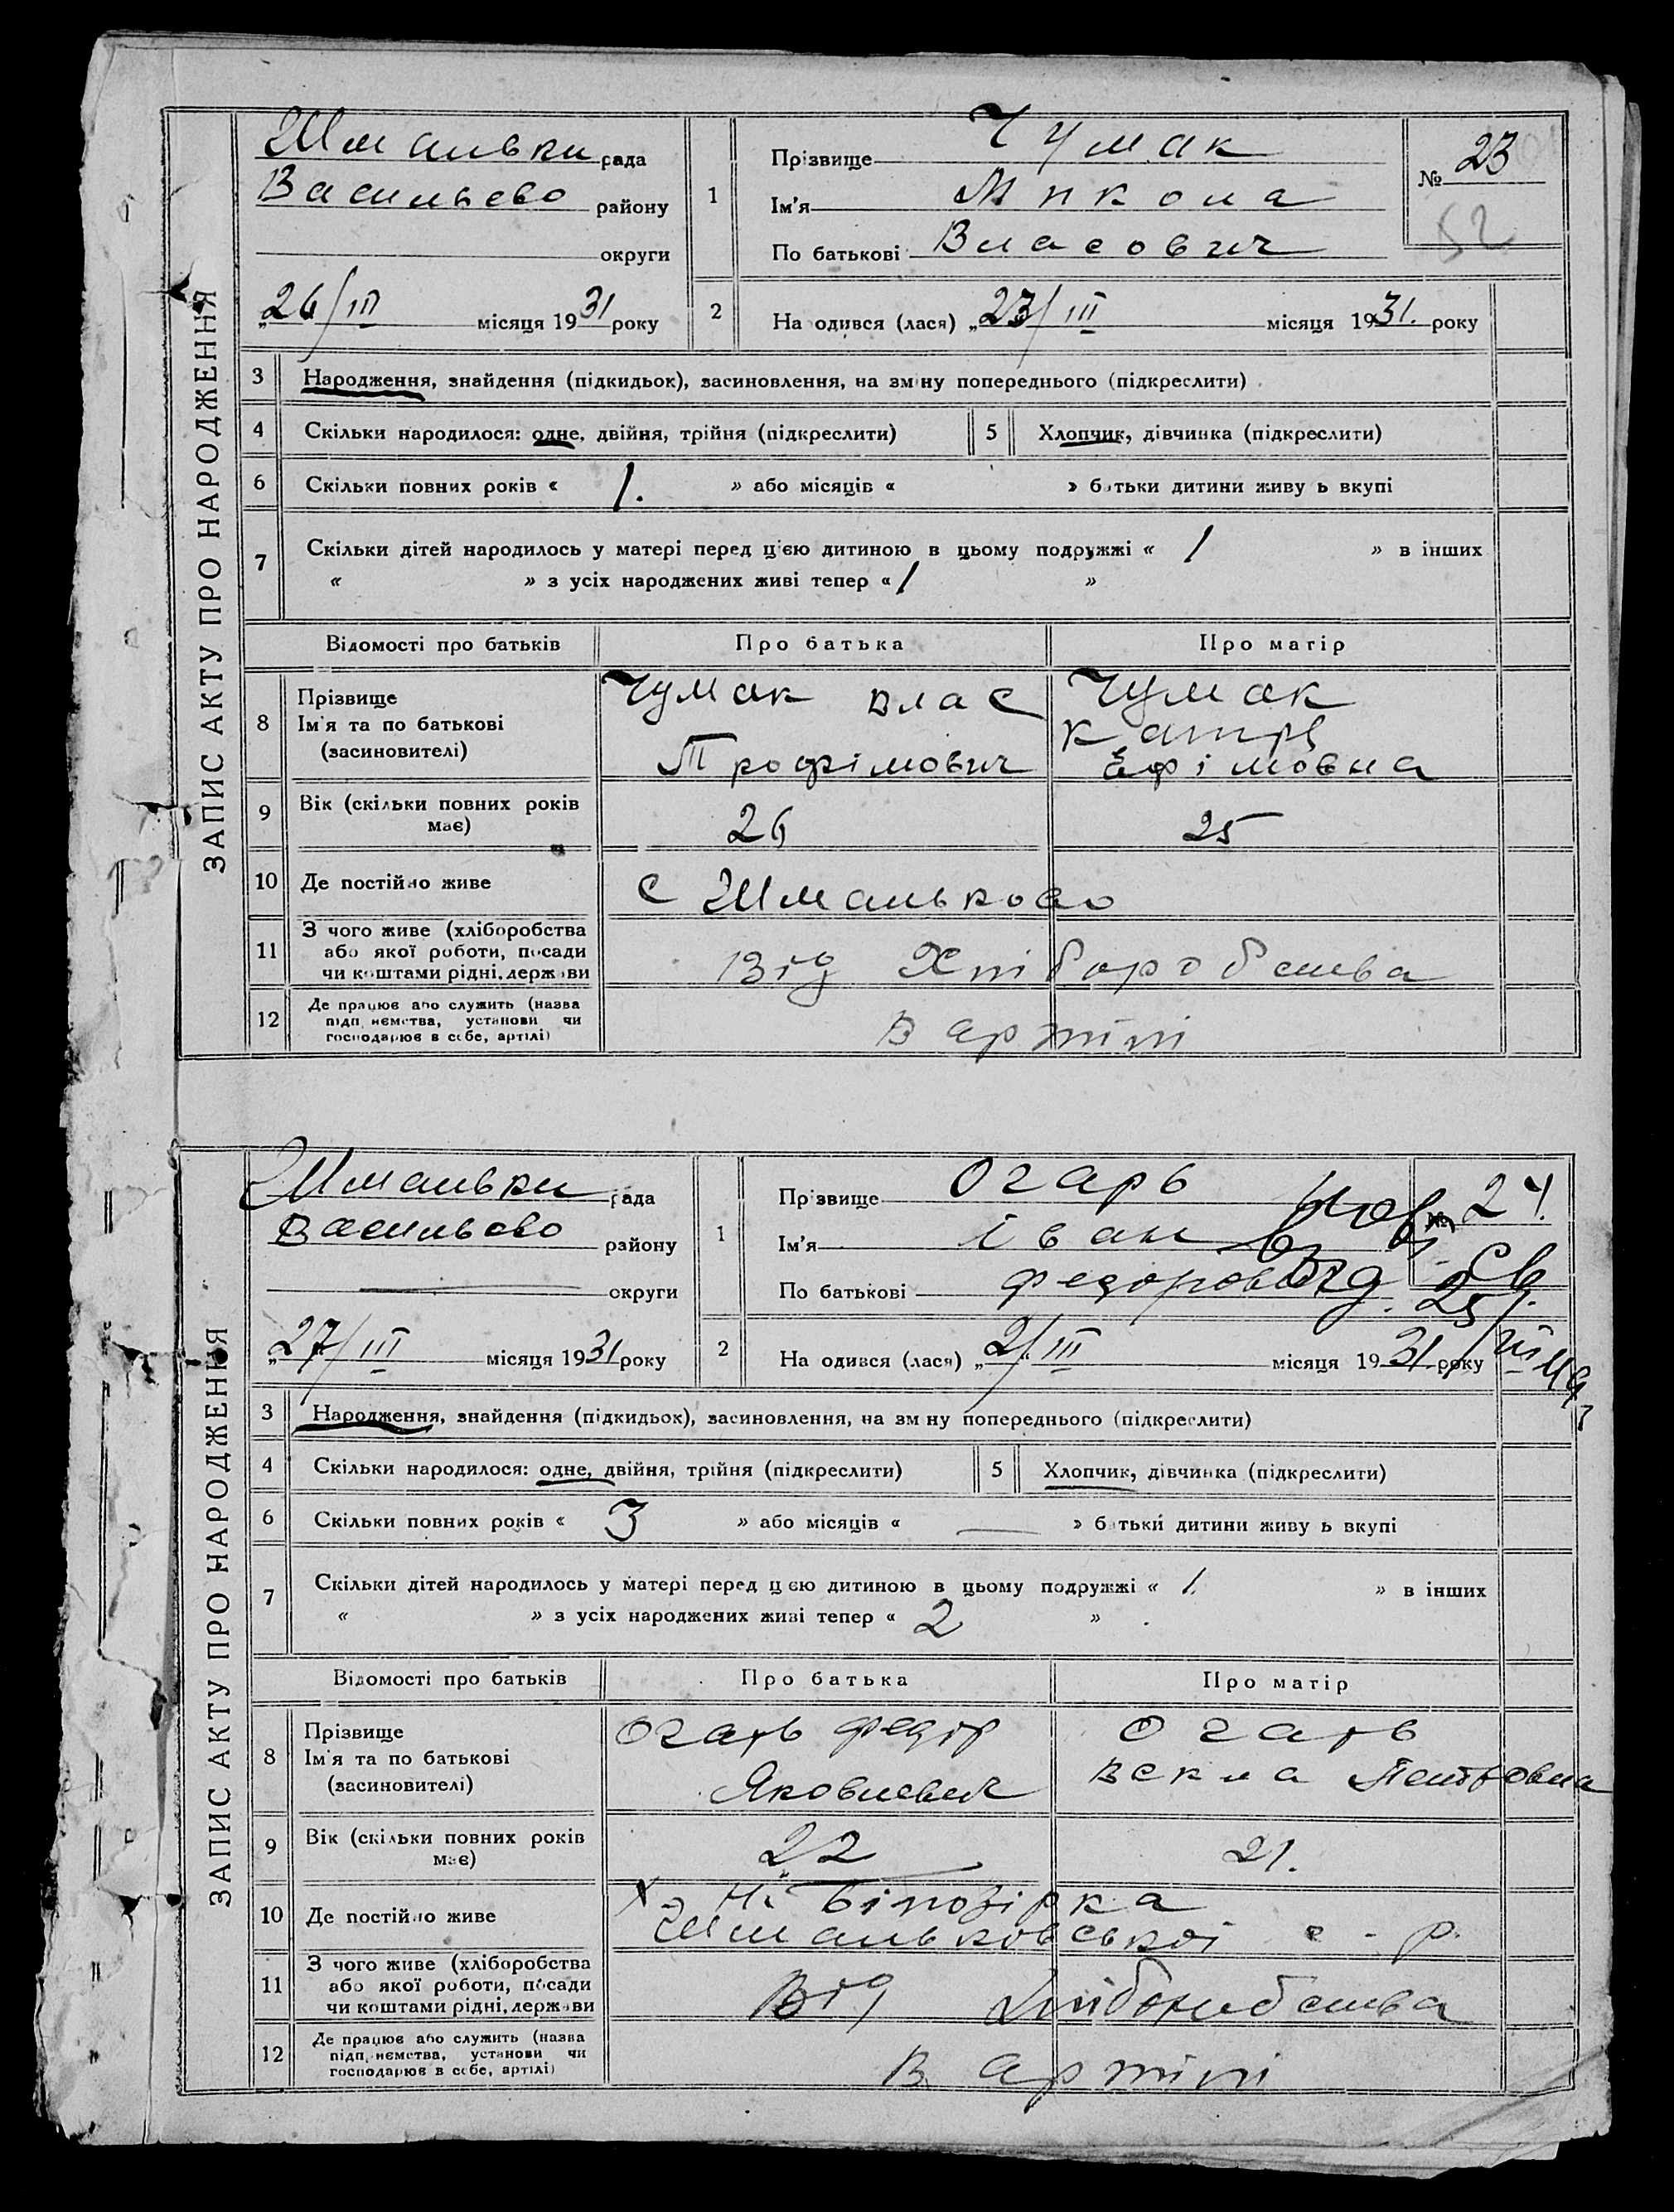 ЗАПИС АКТУ ПРО НАРОДЖЕННЯ
Шмальки рада
Васильево району
округи
„26/III місяця 1931 року
1
Прізвище Чумак
Ім'я Микола
По батькові Власович
№ 23
52
2
На одився (лася) „23/III місяця 1931. року
3 Народження, знайдення (підкидьок), засиновлення, на зміну попереднього (підкреслити)
4 Скільки народилося: одне, двійня, трійня (підкреслити)
5 Хлопчик, дівчинка (підкреслити)
6 Скільки повних років « 1. » або місяців « » батьки дитини живу ь вкупі
7 Скільки дітей народилось у матері перед цією дитиною в цьому подружжі « 1 » в інших
« » з усіх народжених живі тепер « 1 »
Відомості про батьків Про батька Про матір
8 Прізвище
Ім'я та по батькові
(засиновителі)
Чумак Влас
Трофімович
Чумак
Катря
Єфімовна
9 Вік (скільки повних років
має)
26 25
10 Де постійно живе
с Шмальково
11 З чого живе (хліборобства
або якої роботи, посади
чи коштами рідні, держави
Від Хліборобства
12 Де працює або служить (назва
підп иємства, установи чи
господарює в себе, артілі)
В артілі
ЗАПИС АКТУ ПРО НАРОДЖЕННЯ
Шмальки рада
Васильево району
округи
„27/III місяця 1931 року
1
Прізвище Огарь
Ім'я Іван
По батькові Федорович
24.
2
На одився (лася) „2/III місяця 1931 року
3 Народження, знайдення (підкидьок), засиновлення, на зм ну попереднього (підкреслити)
4 Скільки народилося: одне, двійня, трійня (підкреслити)
5 Хлопчик, дівчинка (підкреслити)
6 Скільки повних років « 3 » або місяців « — » батьки дитини живу ь вкупі
7 Скільки дітей народилось у матері перед цією дитиною в цьому подружжі « 1. » в інших
« » з усіх народжених живі тепер « 2 »
Відомості про батьків Про батька Про матір
8 Прізвище
Ім'я та по батькові
(засиновителі)
Огарь Федір
Яковлевич
Огарь
Векла Петровна
9 Вік (скільки повних років
має)
22 21.
10 Де постійно живе
Х. Н. Білозірка
Шмальковської с-р.
11 З чого живе (хліборобства
або якої роботи, посади
чи коштами рідні, держави
Від Хліборобства
12 Де працює або служить (назва
підп иємства, установи чи
господарює в себе, артілі)
В артілі